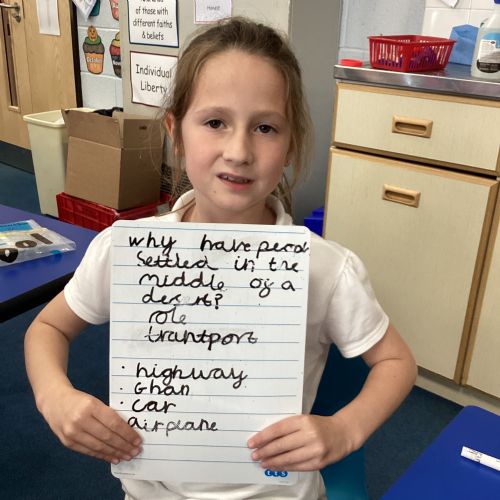 of those with
different faiths
& beliefs
Individual
Liberty
October
100
why have
settled in the
middle of a
desert?
role
trantport
· highway
· Ghan
· car
airplane
TTS